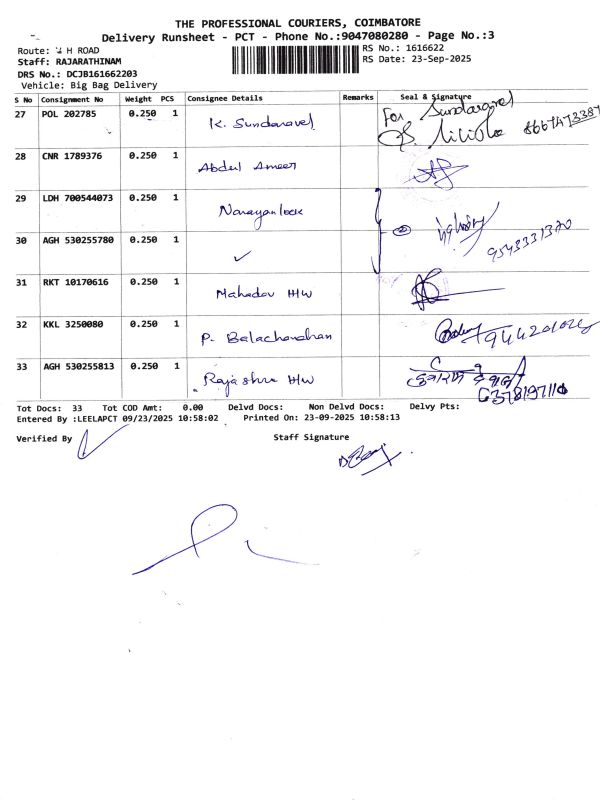 THE PROFESSIONAL COURIERS, COIMBATORE
Delivery Runsheet - PCT - Phone No.:9047080280 - Page No.:3
Route: H ROAD
RS No.: 1616622
Staff: RAJARATHINAM
RS Date: 23-Sep-2025
DRS No.: DCJB161662203
Vehicle: Big Bag Delivery
S No Consignment No Weight PCS Consignee Details Remarks Seal & Signature
27 POL 202785 0.250 1 K. Sundaravel For Sundaravel
28 CNR 1789376 0.250 1 Abdul Ameer
29 LDH 700544073 0.250 1 Narayanlook
30 AGH 530255780 0.250 1 ✓ 9543331320
31 RKT 10170616 0.250 1 Mahadev H/W
32 KKL 3250080 0.250 1 P. Balachandhan
33 AGH 530255813 0.250 1 Rajashree H/W
Tot Docs: 33 Tot COD Amt: 0.00 Delvd Docs: Non Delvd Docs: Delvy Pts:
Entered By :LEELAPCT 09/23/2025 10:58:02 Printed On: 23-09-2025 10:58:13
Verified By
Staff Signature